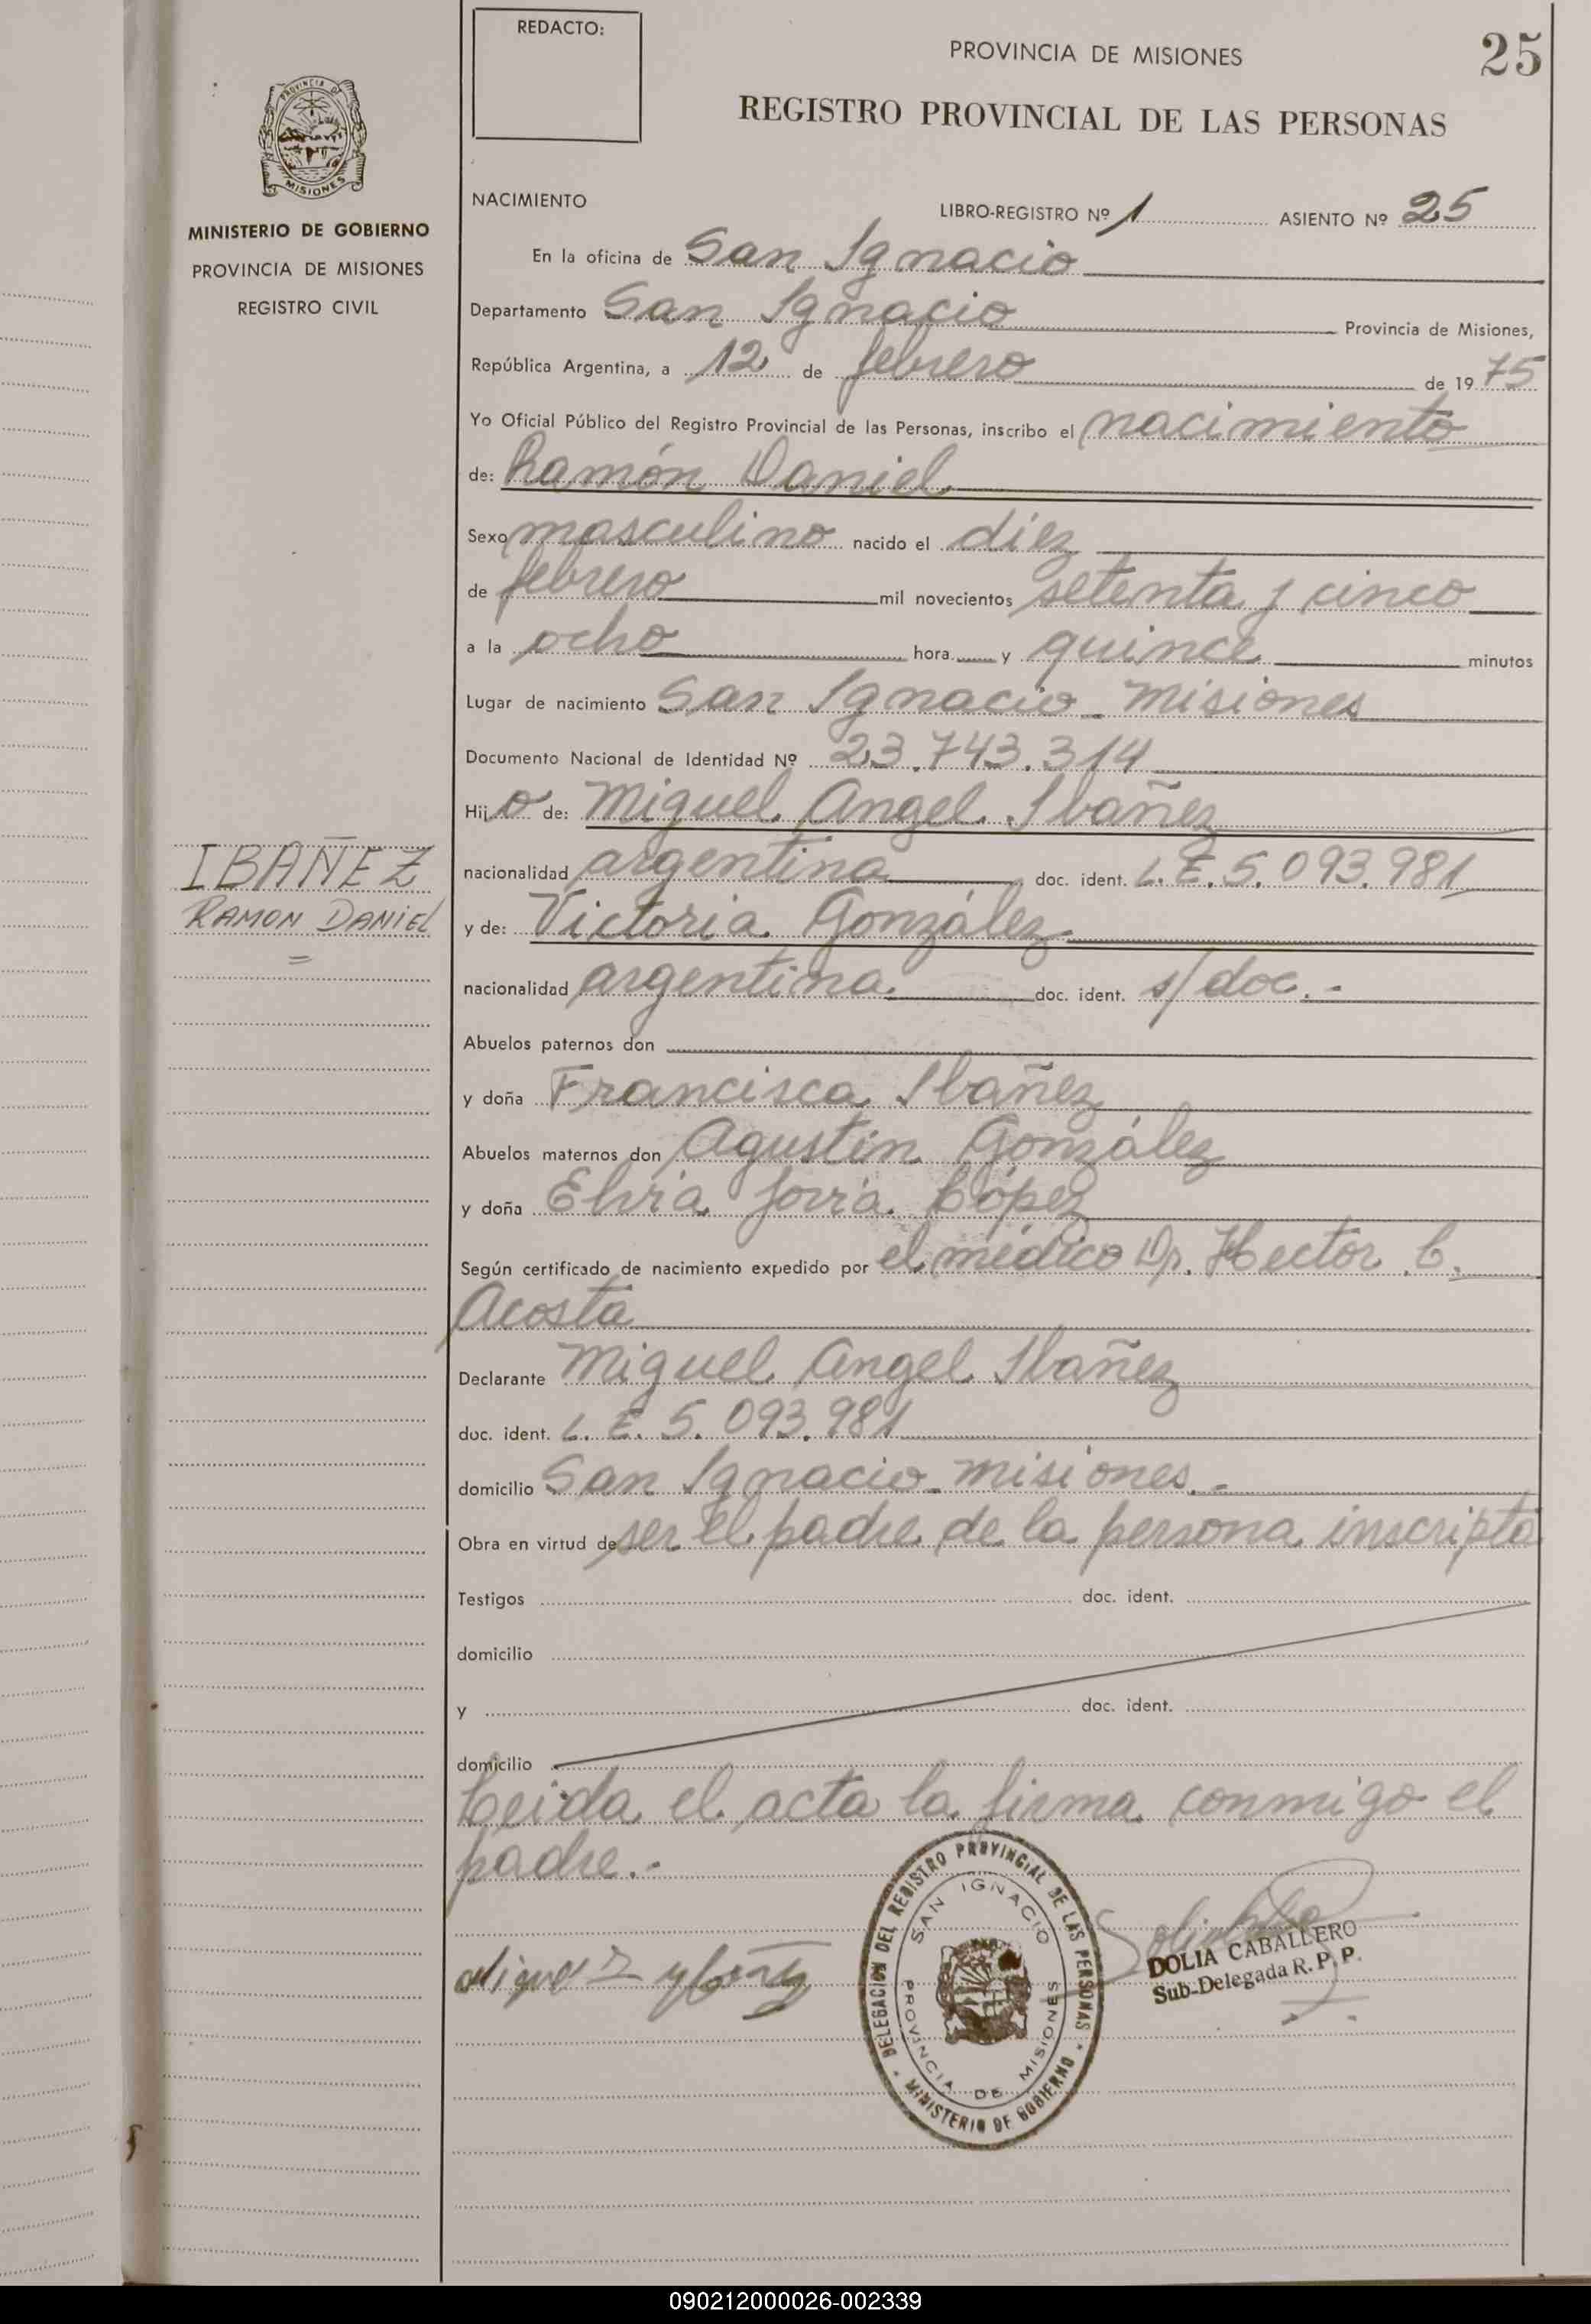 REDACTO:
PROVINCIA DE MISIONES
25
REGISTRO PROVINCIAL DE LAS PERSONAS
PROVINCIA DE
MISIONES
MINISTERIO DE GOBIERNO
PROVINCIA DE MISIONES
REGISTRO CIVIL
NACIMIENTO
LIBRO-REGISTRO Nº 1 ASIENTO Nº 25
En la oficina de San Ignacio
Departamento San Ignacio Provincia de Misiones,
República Argentina, a 12 de febrero de 19 75
Yo Oficial Público del Registro Provincial de las Personas, inscribo el nacimiento
de: Ramón Daniel
Sexo masculino nacido el diez
de febrero mil novecientos setenta y cinco
a la ocho hora y quince minutos
Lugar de nacimiento San Ignacio - Misiones
Documento Nacional de Identidad Nº 23.743.314
Hij o de: Miguel Angel Ibañez
IBAÑEZ
RAMON DANIEL
=
nacionalidad argentina doc. ident. L.E. 5.093.981
y de: Victoria González
nacionalidad argentina. doc. ident. s/doc.-
Abuelos paternos don
y doña Francisca Ibañez
Abuelos maternos don Agustín González
y doña López
Según certificado de nacimiento expedido por el médico Dr. Hector C.
Acosta
Declarante Miguel Angel Ibañez
doc. ident. L.E. 5.093.981
domicilio San Ignacio - Misiones.-
Obra en virtud de ser el padre de la persona inscripta
Testigos doc. ident.
domicilio
y doc. ident.
domicilio
Leida el acta la firma conmigo el
padre.-
DELEGACION DEL REGISTRO PROVINCIAL DE LAS PERSONAS
SAN IGNACIO
PROVINCIA DE MISIONES
MINISTERIO DE GOBIERNO
DOLIA CABALLERO
Sub-Delegada R. P. P.
090212000026-002339